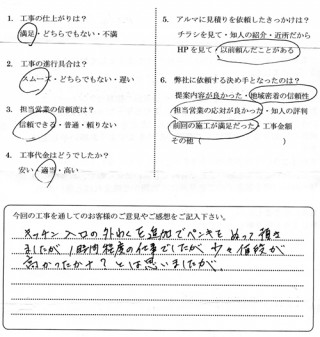 1. 工事の仕上がりは？
満足・どちらでもない・不満
2. 工事の進行具合は？
スムーズ・どちらでもない・遅い
3. 担当営業の信頼度は？
信頼できる・普通・頼りない
4. 工事代金はどうでしたか？
安い・適当・高い
5. アルマに見積りを依頼したきっかけは？
チラシを見て・知人の紹介・近所だから
HPを見て・以前頼んだことがある
6. 弊社に依頼する決め手となったのは？
提案内容が良かった・地域密着の信頼性
担当営業の応対が良かった・知人の評判
前回の施工が満足だった・工事金額
その他（
今回の工事を通してのお客様のご意見やご感想をご記入下さい。
キッチン入口の外わくを追加でペンキをぬって頂き
ましたが1時間程度の仕事でしたが少々値段が
高かったかナ？とは思いましたが。